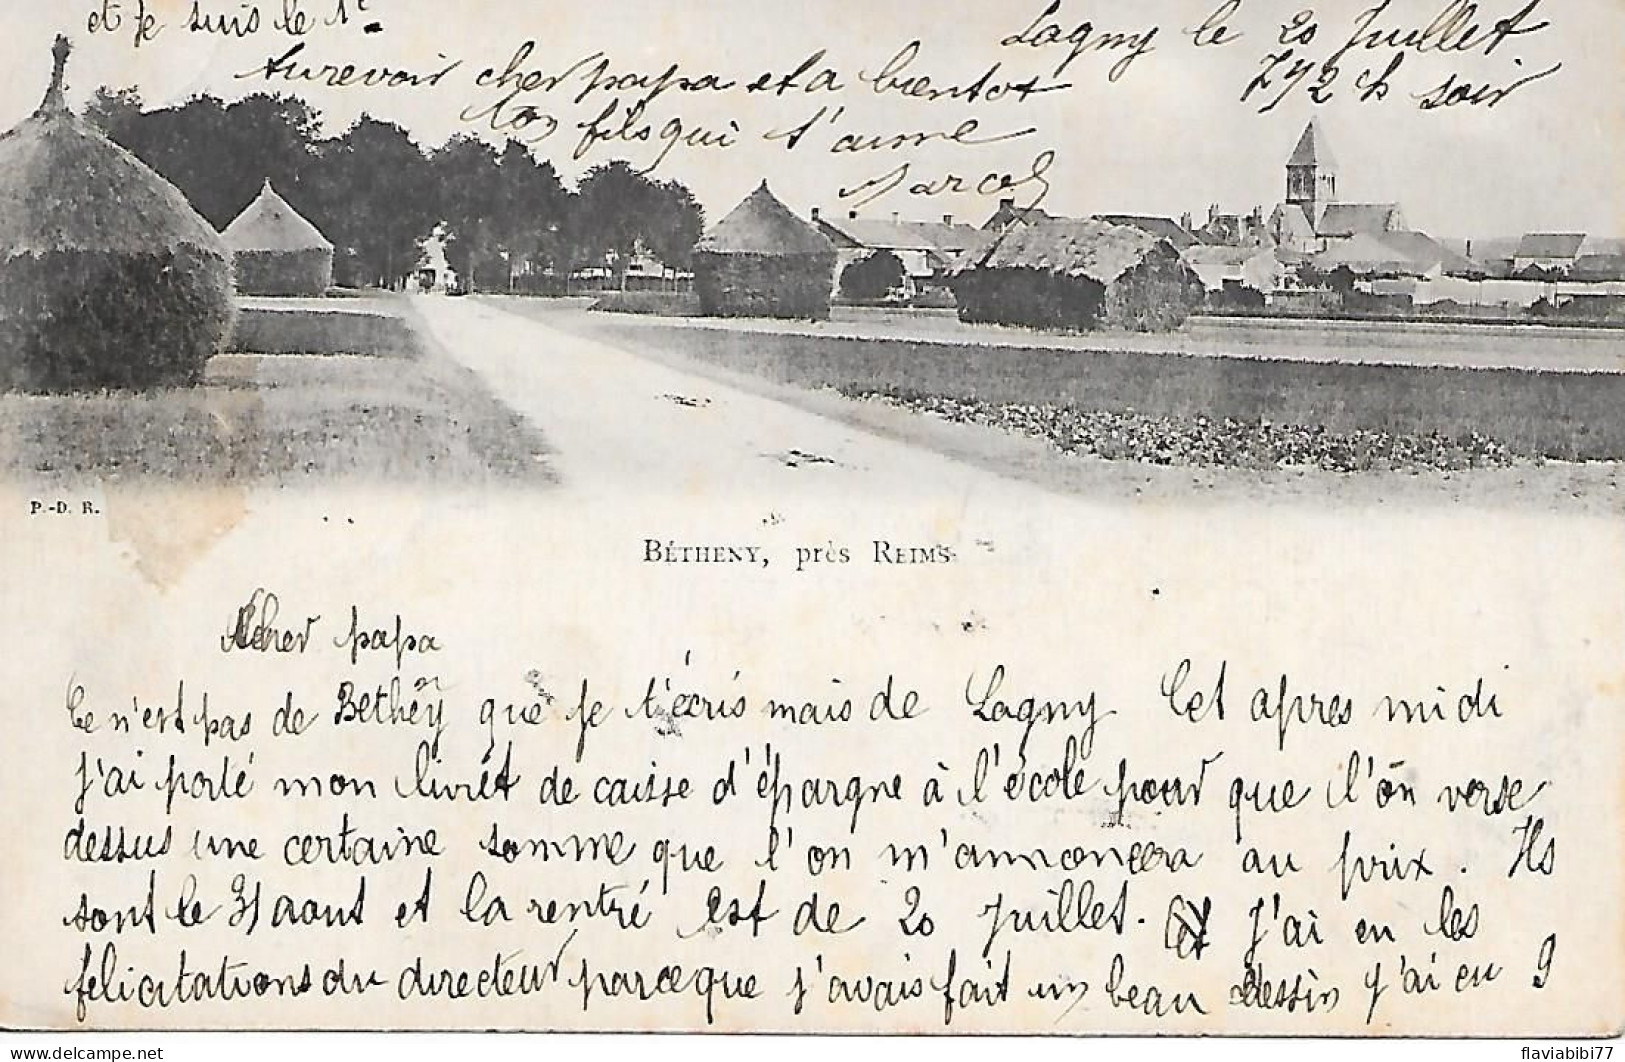 et je suis le 1e
Lagny le 20 Juillet
7 1/2 h soir
Aurevoir cher papa et a bientot
Ton fils qui t'aime
Marcel
P.-D. R.
BÉTHENY, près REIMS
cher papa
Ce n'est pas de Bethény que je t'écris mais de Lagny Cet apres midi
j'ai porté mon livret de caisse d'épargne à l'école pour que l'on verse
dessus une certaine somme que l'on m'annoncera au prix. Ils
sont le 31 aout et la rentré est de 20 Juillet. J'ai eu les
felicitations du directeur parce que j'avais fait un beau dessin j'ai eu 9
delcampe.net
flaviabibi77